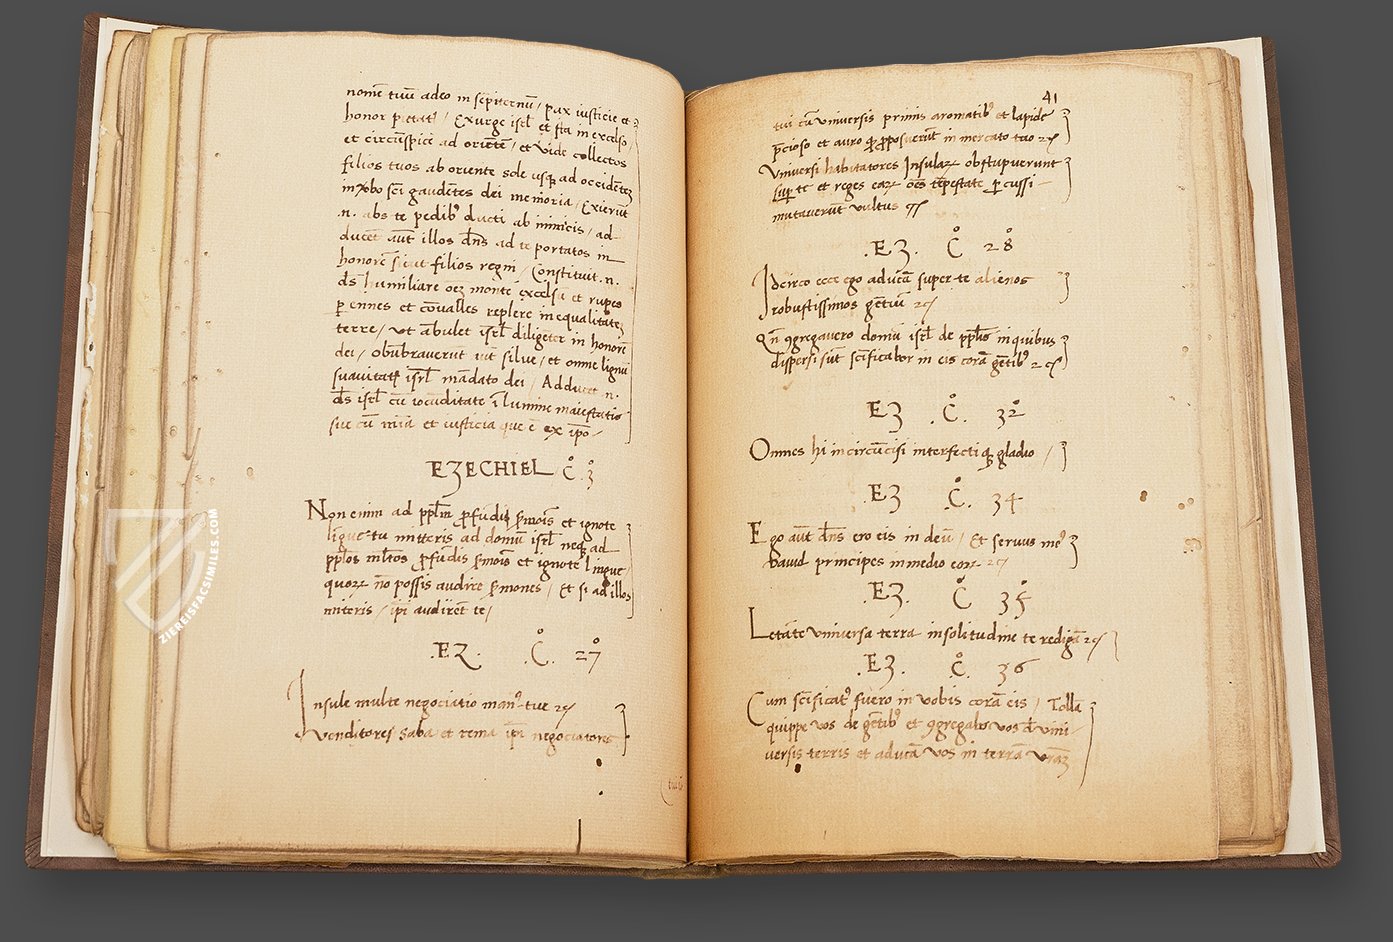 nomē tuū adeo in sēpiternū / pax iusticie et
honor pietatꝭ / Exurge isrl̄ et sta in excelso /
et circūspice ad oriētē / et vide collectos
filios tuos ab oriente sole usqꝫ ad occidētē
in Xbo sc̄i gaudētes dei memoria / Exierūt
.n. abs te pedibꝰ ducti ab inimicis / ad-
ducet aūt illos dn̄s ad te portatos in
honorē sicut filios regni / Constituit .n.
ds̄ humiliare oēꝫ montē excelsū et rupes
perennes et cōualles replere in equalitatēꝫ
terre / ut ābulet isrl̄ diligēter in honorē
dei / Obūbraverūt aūt silve / et omne lignū
suavitatꝭ isrl̄ mādato dei / Adducet .n.
ds̄ isrl̄ cū iocūditate ī lumine maiestatis
sue cū mīa et iusticia que ē ex ip̄o /
EZECHIEL C̊. 3̊
Non enim ad pp̄lm̄ ꝓfūdi s̄mois et ignote
līgue tu mitteris ad domū isrl̄ neqꝫ ad
pp̄los ml̄tos ꝓfūdis s̄mois et ignote lingue /
quorꝝ nō possis audire s̄mones / Et si ad illos
mitteris / ip̄i audirēt te /
.EZ. .C̊. 27̊
Insule multe negociatio manꝰ tue ⁊c̄
Venditores Saba et rema ip̄i negociatores
tui cū
41
tui cū universis primis aromatibꝰ et lapide
p̄cioso et auro qꝫ ꝓposuerūt in mercato tuo ⁊c̄
Universi habitatores Insularꝝ obstupuerunt
sup te et reges earꝝ oēs tēpestate ꝑcussi
mutaverūt vultus
.EZ. C̊ 28̊
Idcirco ecce ego adducā super te alienos
robustissimos gētiū ⁊c̄
Qn̄ ꝯgregavero domū isrl̄ de pp̄lis in quibus
dispersi sūt sc̄ificabor in eis corā gētibꝰ ⁊c̄
EZ .C̊. 32̊
Omnes hi incircūcisi interfectiqꝫ gladio /
.EZ .C̊. 34
Ego aūt dn̄s ero eis in deū / Et servus meꝰ
David princeps in medio eorꝝ ⁊c̄
.EZ. C̊ 35̊
Letāte universa terra in solitudine te redigā ⁊c̄
.EZ. C̊. 36̊
Cum sc̄ificatꝰ fuero in vobis corā eis / Tollā
quippe vos de gētibꝰ et ꝯgregabo vos d̄ uni-
versis terris et adducā vos in terrā vrāꝫ
ZIEREISFACSIMILES.COM